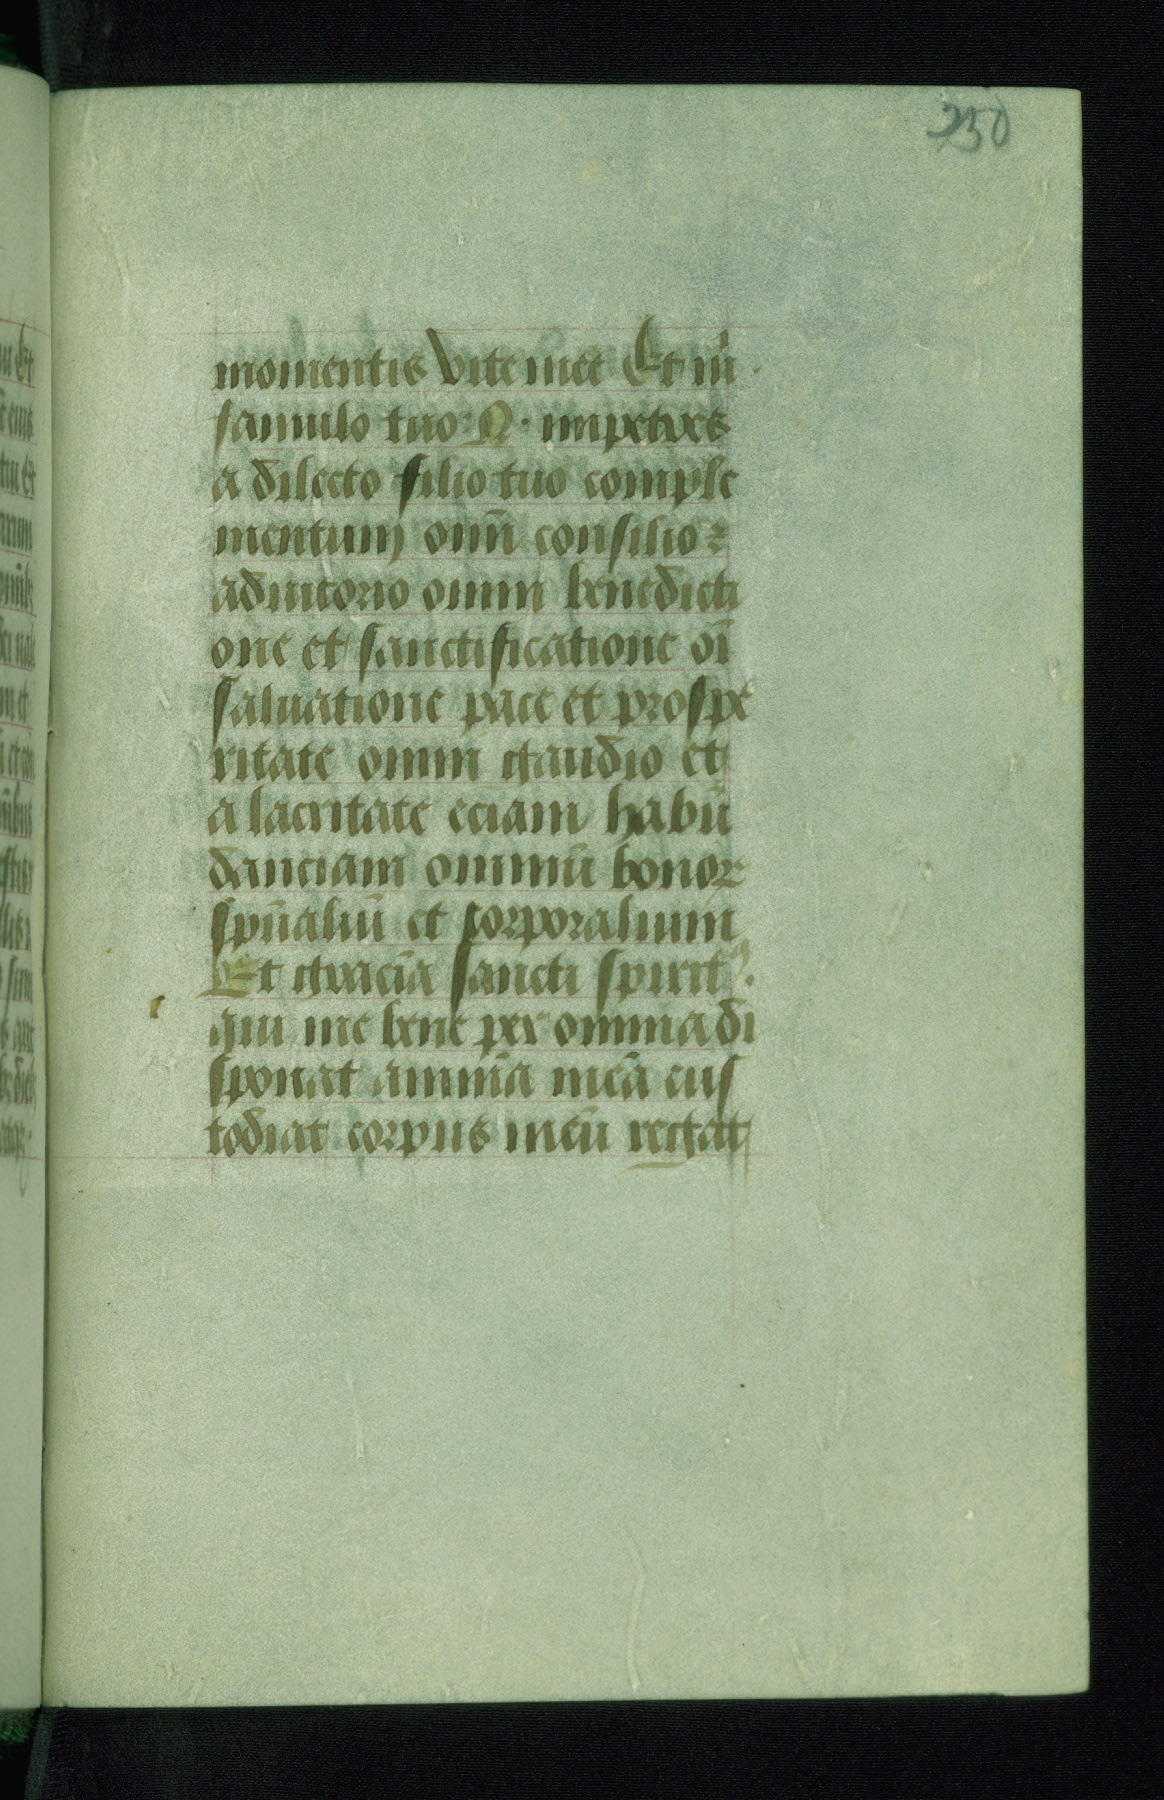 250
momentis vite mee Et m̄
famulo tuo N · impetres
a dilecto filio tuo comple
mentum om̄i consilioꝛ
adiutorio omni benedicti
one et sanctificatione oī
saluatione pace et prospe
ritate omni gaudio et
alacritate eciam habū
danciam omniū bonoꝝ
spūaliū et corporalium
Et gracia sancti spiritꝰ
qui me bene per omnia di
sponat animā meā cus
todiat corpus meū regat